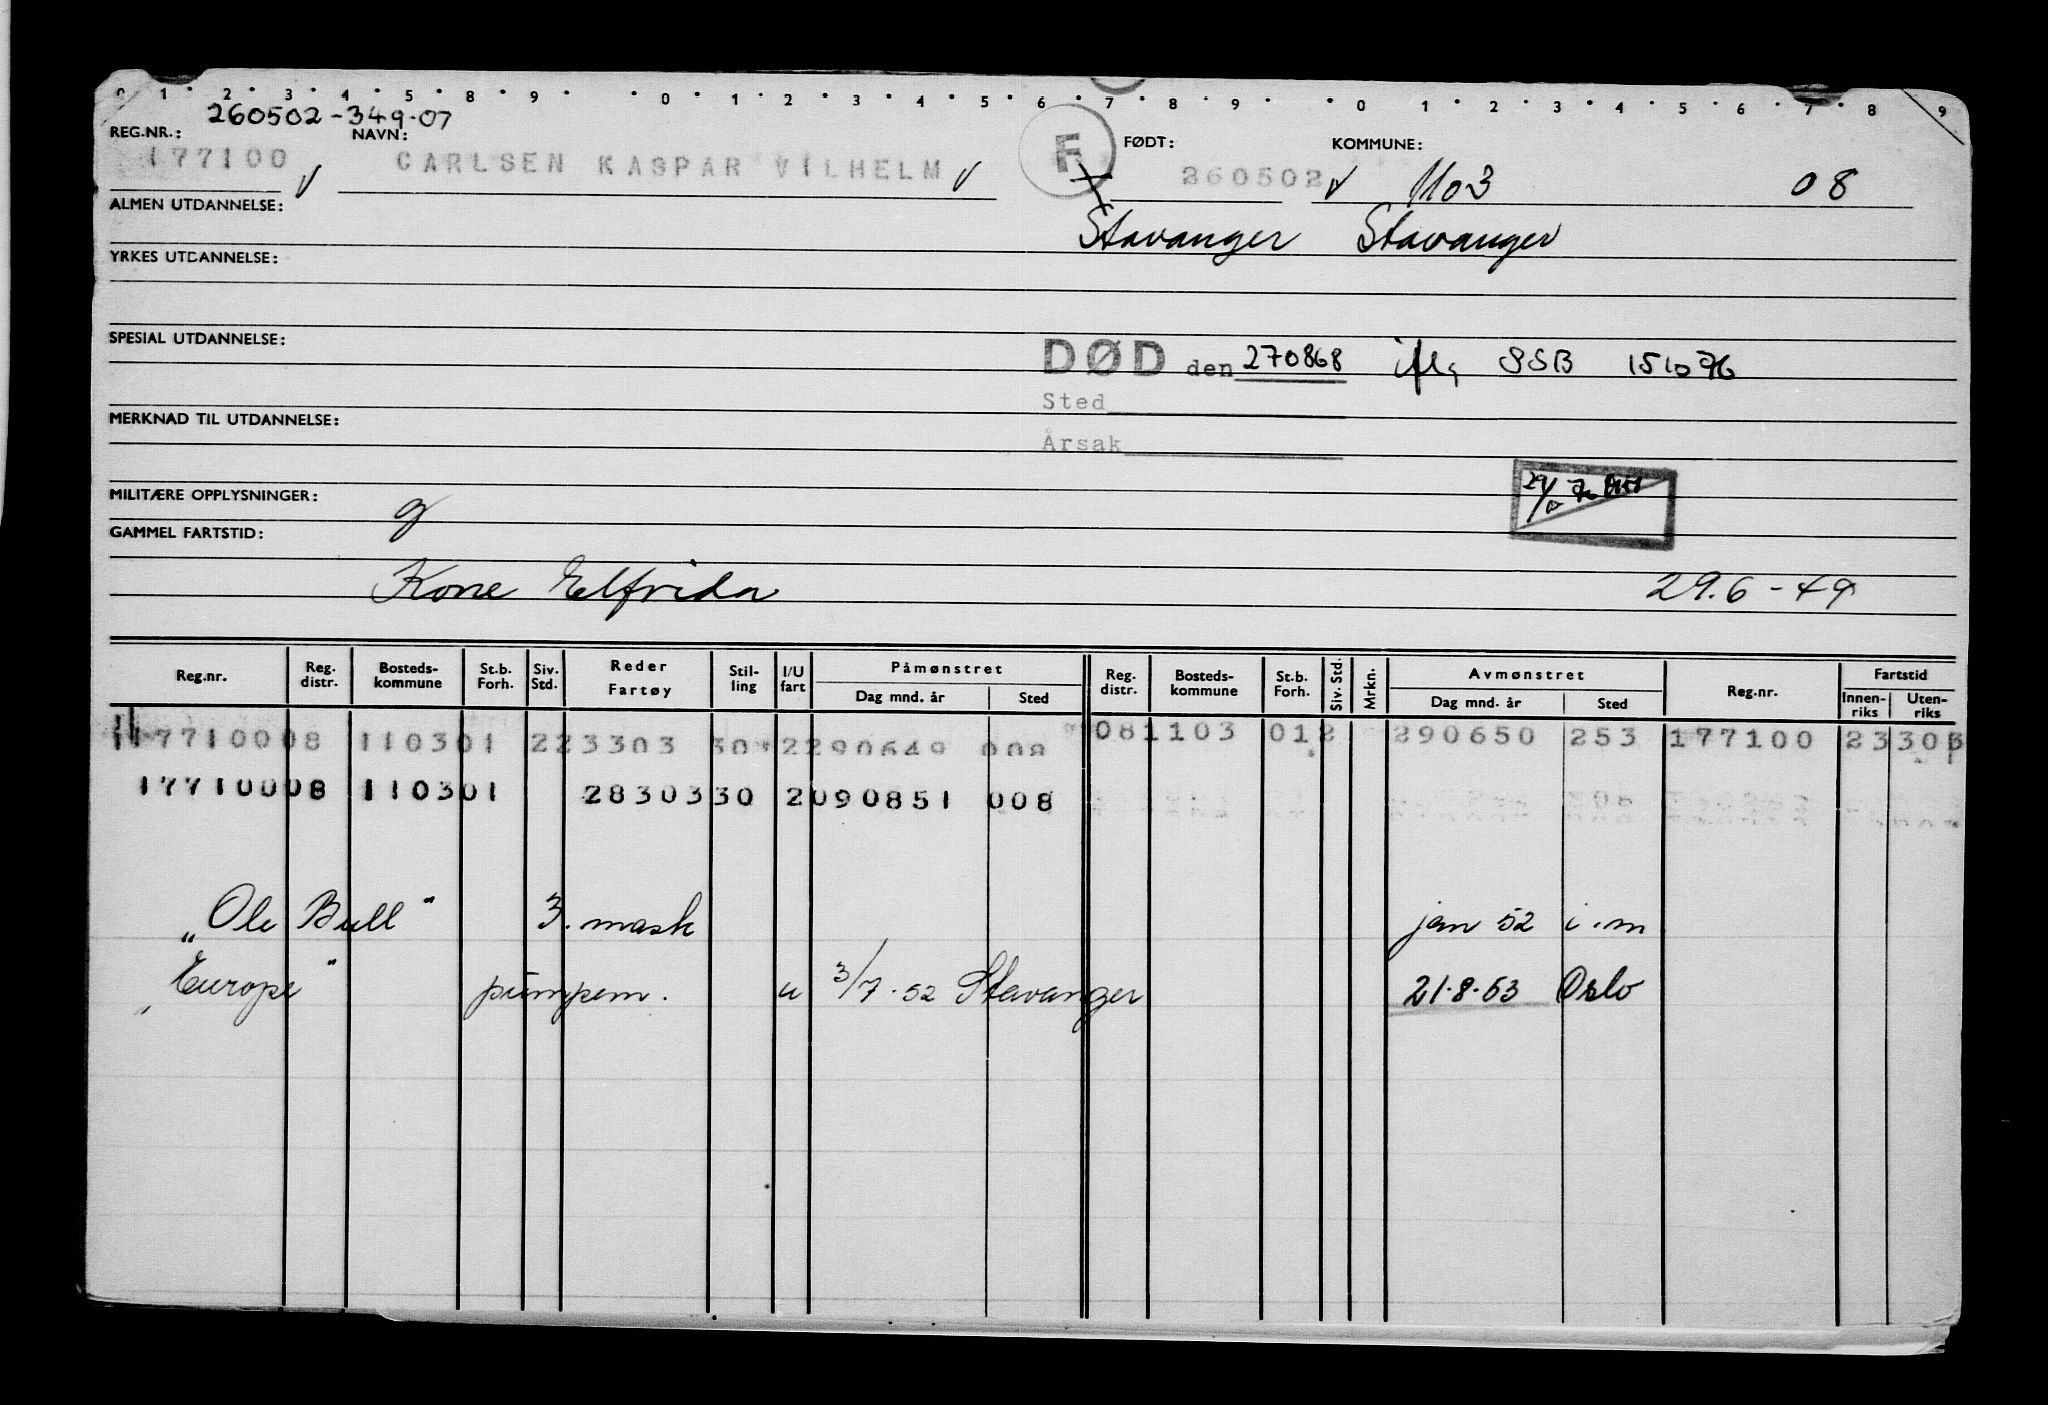 0 1 2 3 4 5 8 9 0 1 2 3 4 5 6 7 8 9 0 1 2 3 4 5 6 7 8 9
260502-349-07
REG.NR.: NAVN: F FØDT: KOMMUNE:
177100 CARLSEN KASPAR VILHELM 260502 1103 08
ALMEN UTDANNELSE: Stavanger Stavanger
YRKES UTDANNELSE:
SPESIAL UTDANNELSE:
DØD den 270868 iflg SSB 151076
Sted
MERKNAD TIL UTDANNELSE:
Årsak
MILITÆRE OPPLYSNINGER: g
GAMMEL FARTSTID:
Kone Elfrida 29.6-49
Reg.nr. Reg. distr. Bosteds-kommune St.b. Forh. Siv. Std. Reder Fartøy Stil-ling I/U fart Påmønstret Dag mnd. år Sted Reg. distr. Bosteds-kommune St.b. Forh. Siv. Std. Mrkn. Avmønstret Dag mnd. år Sted Reg.nr. Fartstid Innen-riks Uten-riks
177100 08 1103 01 2 23303 30 2 290649 008 08 1103 01 2 290650 253 177100
177100 08 1103 01 28303 30 2 090851 008
„Ole Bull" 3. mask jan 52 i.m
„Europe" pumpem. u 3/7.52 Stavanger 21.8.63 Oslo